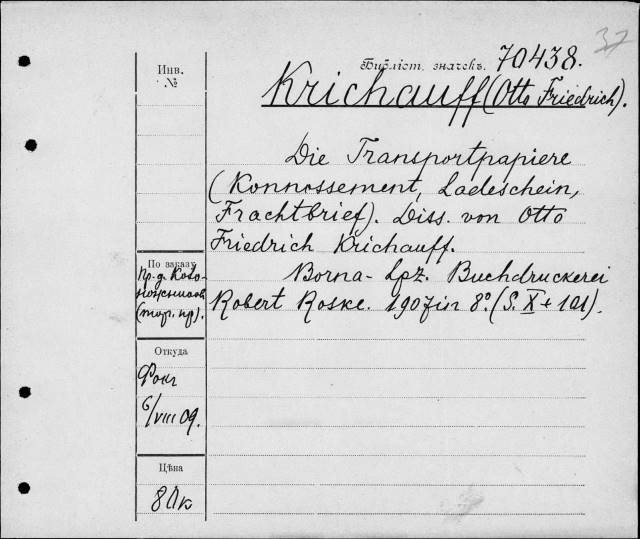 37
Библіот. значекъ. 70438.
Krichauff (Otto Friedrich).
Инв.
№
Die Transportpapiere
(Konnossement, Ladeschein,
Frachtbrief). Diss. von Otto
Friedrich Krichauff.
Borna-Lpz. Buchdruckerei
Robert Roske. 1907 in 8º. (S. X + 101).
По заказу
Пр. д.
(тор. пр).
Откуда
Фокг
6/VIII 09.
Цѣна